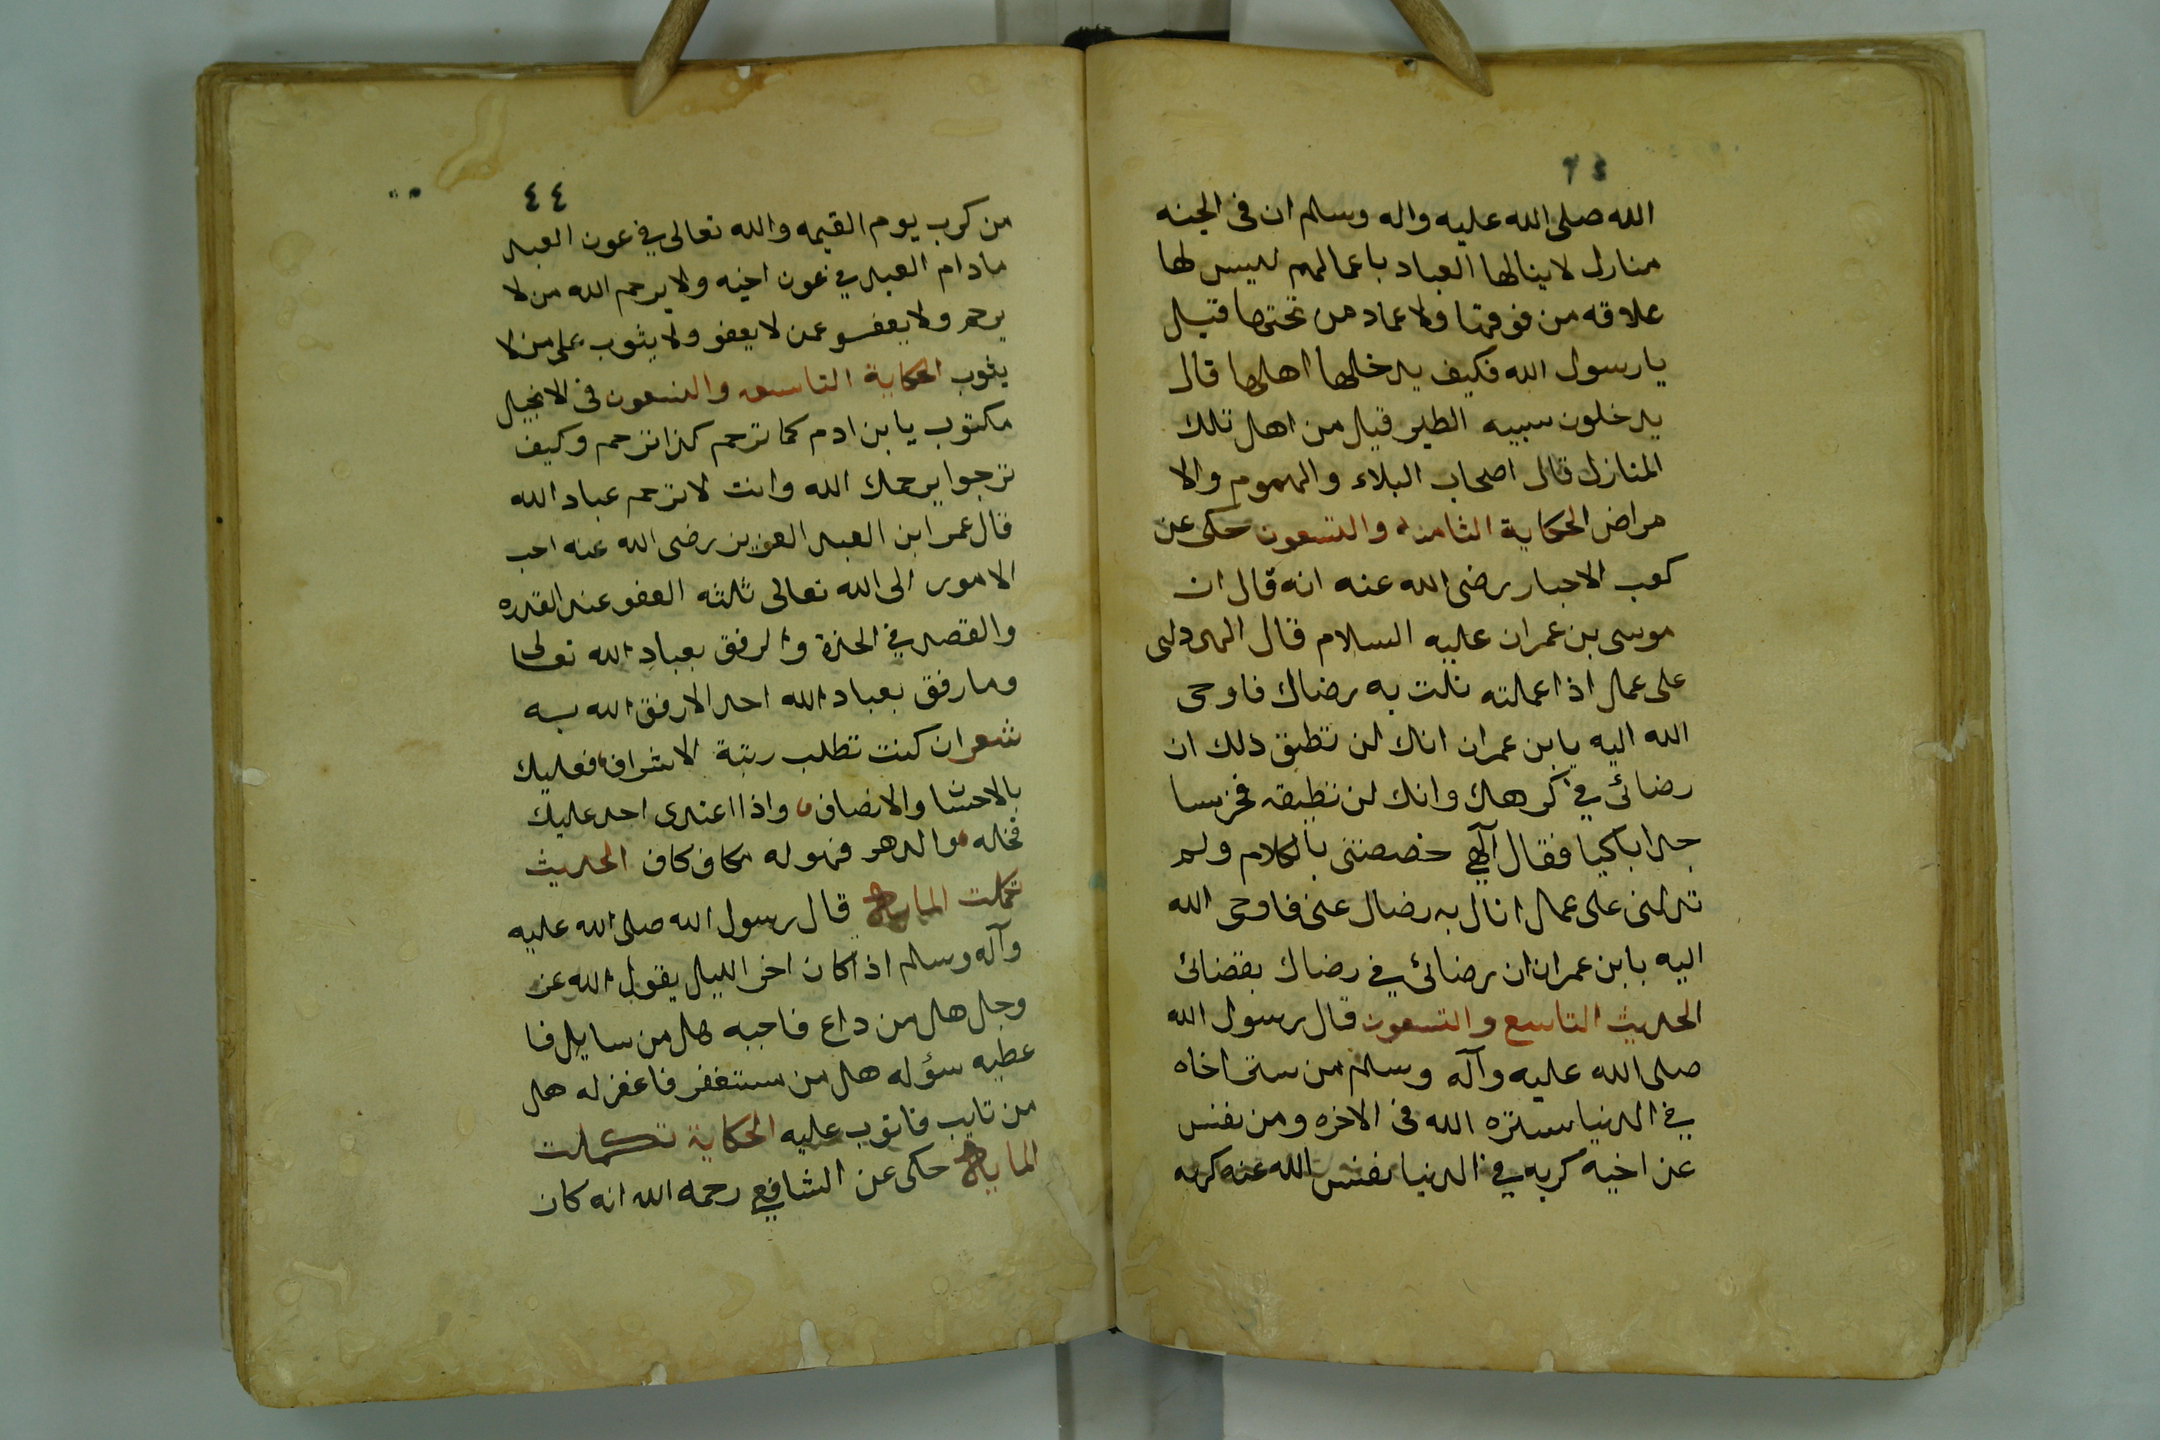 الله صلى الله عليه واله وسلم ان فى الجنه
منازل لاينالها العباد باعمالهم ليس لها
علاقه من فوقها ولا عماد من تحتها قيل
يارسول الله فكيف يدخلها اهلها قال
يدخلون شبيه الطير قيل من اهل تلك
المنازل قال اصحاب البلاء والهموم والا
مراض الحكاية الثامنه والتسعون حكى عن
كعب الاحبار رضى الله عنه انه قال ان
موسى بن عمران عليه السلام قال الهى دلنى
على عمل اذا عملته نلت به رضاك فاوحى
الله اليه يابن عمران انك لن تطيق ذلك ان
رضائى في كرهك وانك لن تطيقه فخر سا
جدا باكيا فقال آلهى خصصتنى بالكلام ولم
تدلنى على عمل انال به رضاك عنى فاوحى الله
اليه يابن عمران ان رضائى في رضاك بقضائى
الحديث التاسع والتسعون قال رسول الله
صلى الله عليه وآله وسلم من ستر اخاه
في الدنيا ستره الله فى الاخره ومن نفس
عن اخيه كربه في الدنيا نفس الله عنه كربه
٤٤
من كرب يوم القيمه والله تعالى في عون العبد
مادام العبد في عون اخيه ولا يرحم الله من لا
يرحم ولا يعفو عمن لا يعفو ولا يثوب على من لا
يثوب الحكاية التاسعه والتسعون فى الانجيل
مكتوب يابن ادم كما ترحم كذا ترحم وكيف
ترجوا يرحمك الله وانت لا ترحم عباد الله
قال عمر ابن العبد العزيز رضى الله عنه احب
الامور الى الله تعالى ثلثه العفو عند القدره
والقصد في الجدة والرفق بعباد الله تعالى
وما رفق بعباد الله احد الا رفق الله به
شعر ان كنت تطلب رتبة الاشراف فعليك
بالاحسان والانصاف واذا اعتدى احد عليك
فخله والدهر فهو له مكاف كاف الحديث
تكملت المايه قال رسول الله صلى الله عليه
وآله وسلم اذا كان اخر الليل يقول الله عز
وجل هل من داع فاجبه هل من سايل فا
عطيه سؤله هل من مستغفر فاغفر له هل
من تايب فاتوب عليه الحكاية تكملت
المايه حكى عن الشافعي رحمه الله انه كان